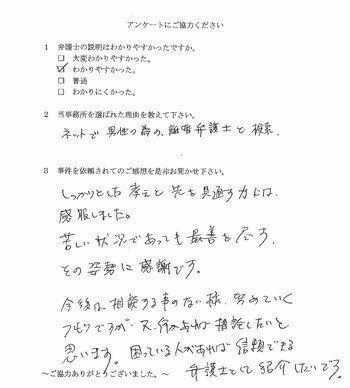 アンケートにご協力ください
1 弁護士の説明はわかりやすかったですか。
□ 大変わかりやすかった。
☑ わかりやすかった。
□ 普通
□ わかりにくかった。
2 当事務所を選ばれた理由を教えて下さい。
ネットで 男性の為の、離婚弁護士と検索、
3 事件を依頼されてのご感想を是非お聞かせ下さい。
しっかりとした考えと先を見通す力には、
感服しました。
苦しい状況であっても最善を尽す、
その姿勢に感謝です。
今後は、相談する事のない様、努めていく
つもりですが、又、何かあれば相談したいと
思います。困っている人があれば信頼できる
弁護士として紹介したいです。
～ご協力ありがとうございました。～